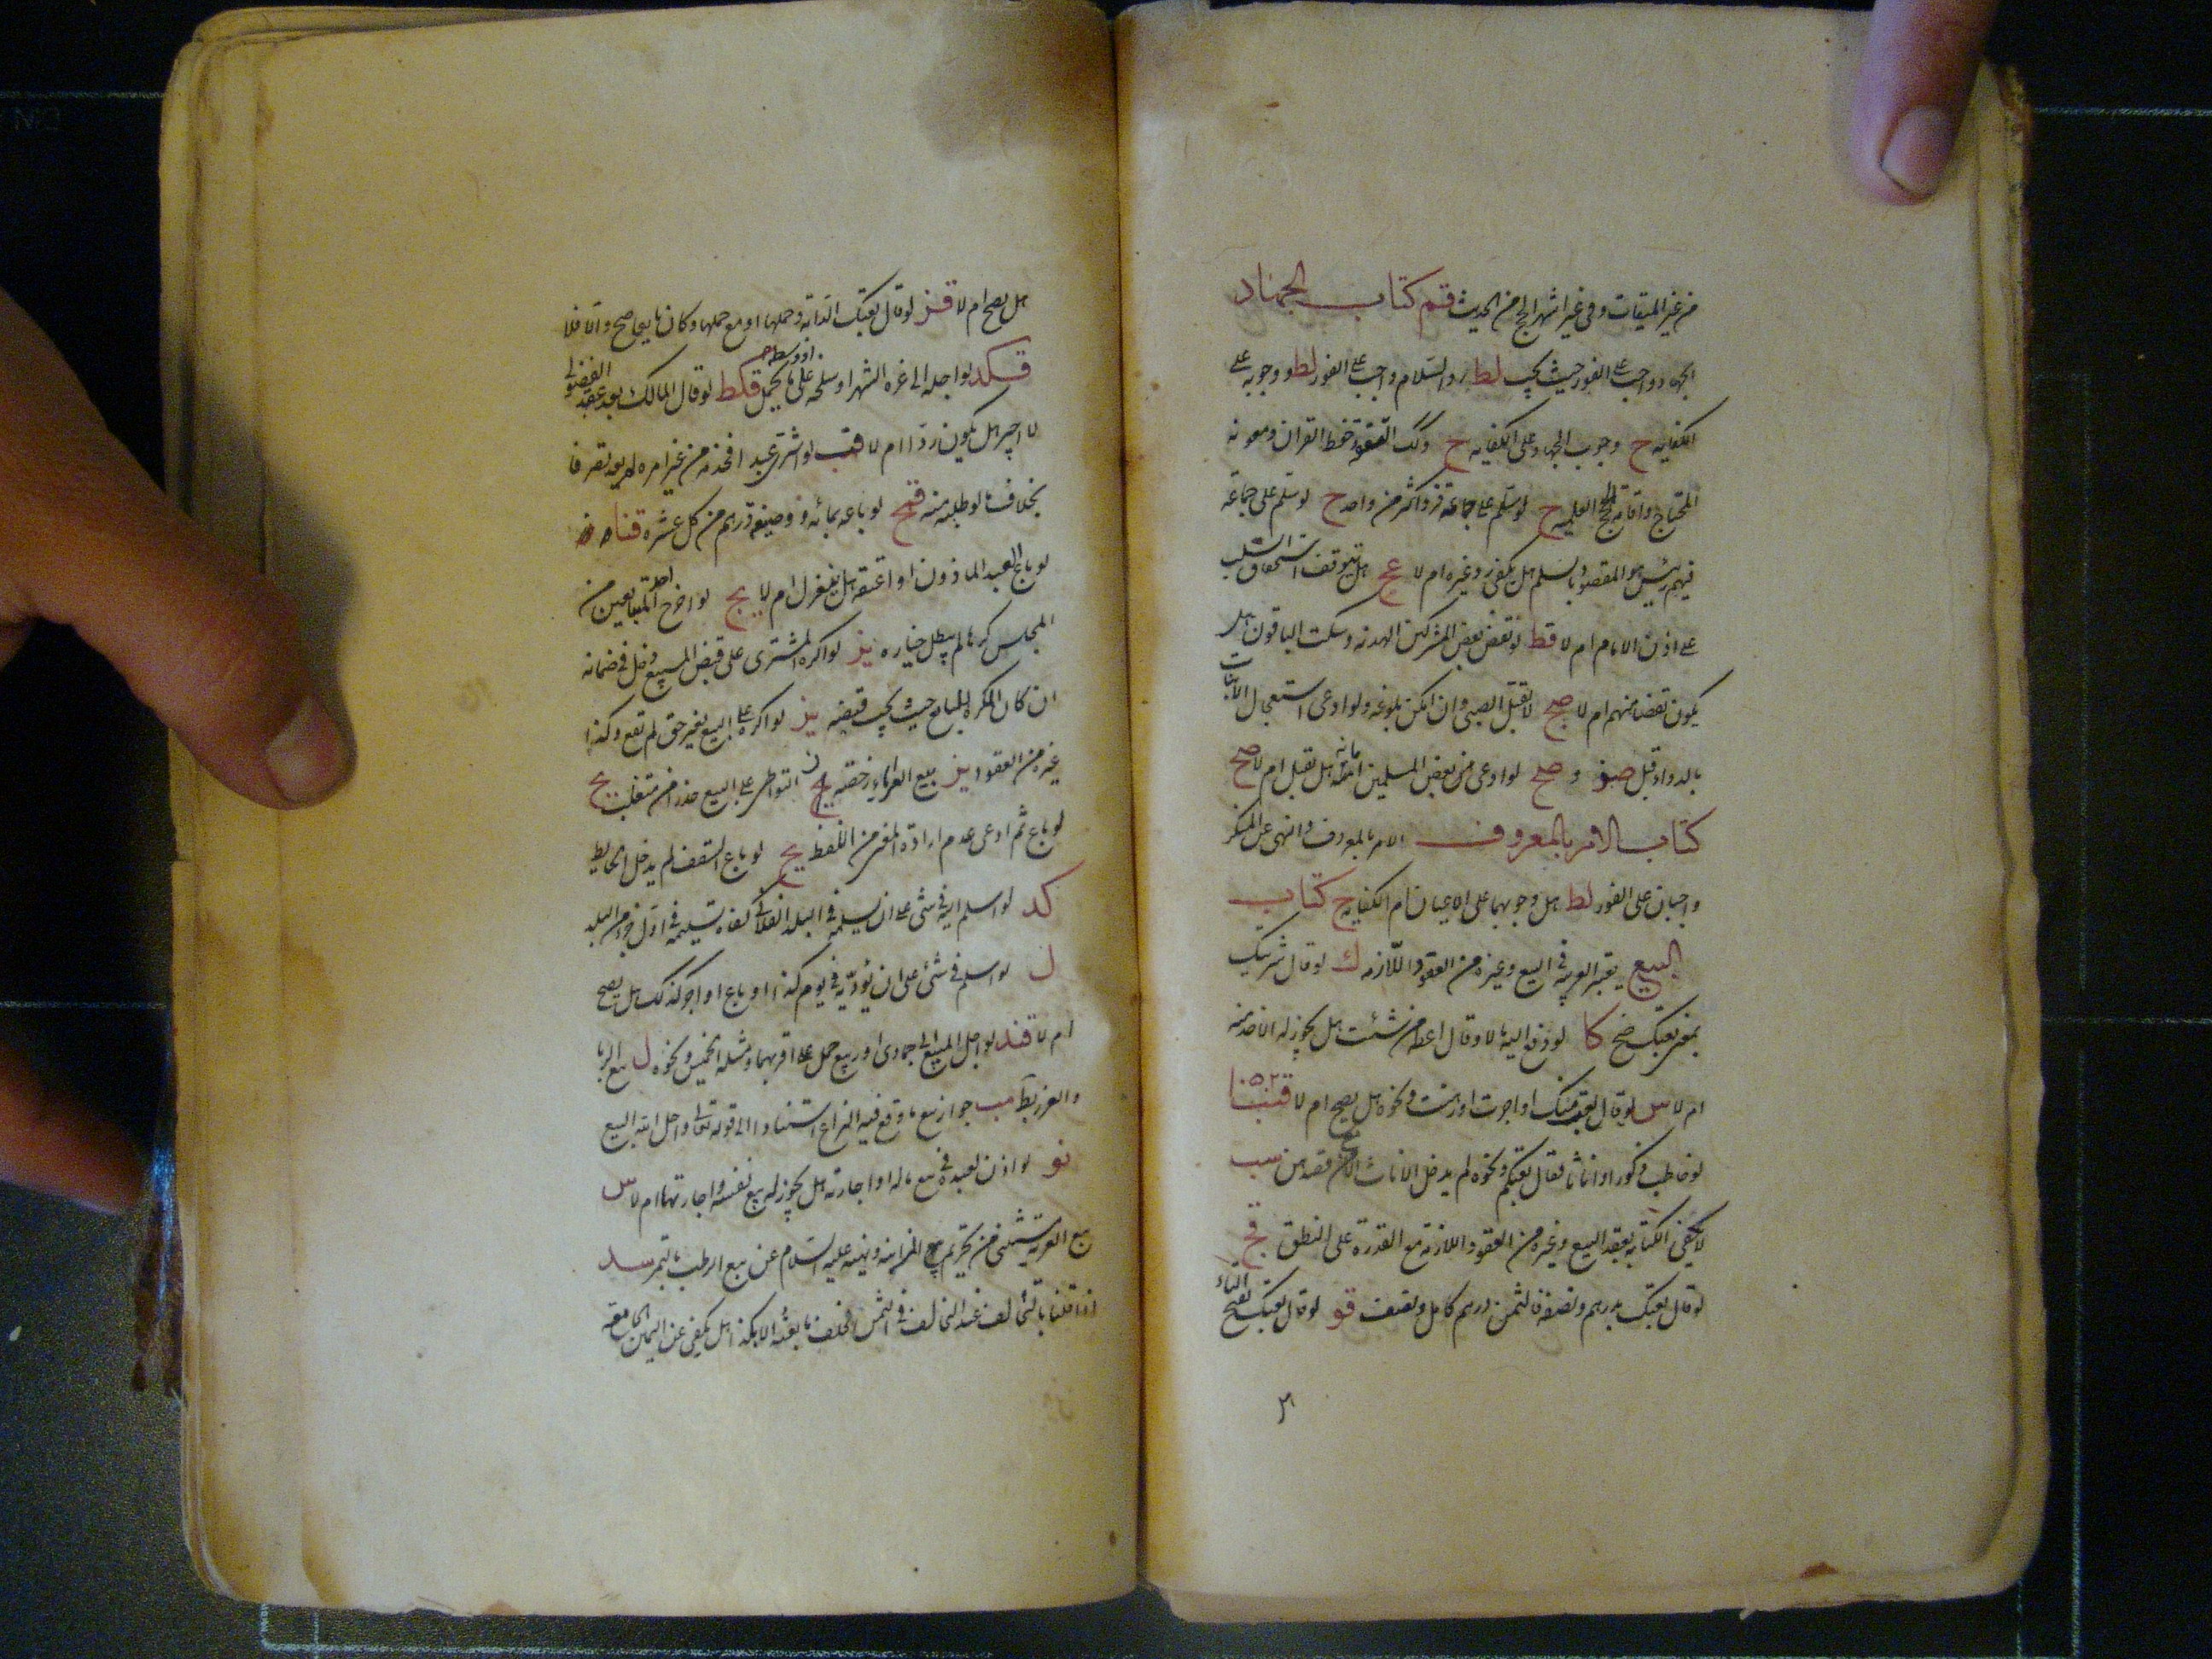 من غير الميقات وفي غير اشهر الحج من الحديث قم كتاب الجهاد
الجهاد واجب على الفور حيث يجب لط رد السلام واجب على الفور لط ووجوبه على
الكفاية ح وجوب الجهاد على الكفاية ح وكك التفقه وحفظ القران ومعونة
المحتاج واقامة الحجج العلمية ح لو سلم على جماعة فرد اكثر من واحد ح لو سلم على جماعة
فيهم رئيس هو المقصود بالسلم هل يكفي رد غيره ام لا عج هل يتوقف استحقاق السلب
على اذن الامام ام لا قط لو نقض بعض المشركين الهدنة وسكت الباقون هل
يكون نقضا منهم ام لا صح لا يقتل الصبي وان امكن بلوغه ولو ادعى استعجال الانبات
بالدواء قبل صو و صح لو ادعى من بعض المسلمين امانه هل تقبل ام لا صح
كتاب الامر بالمعروف الامر بالمعروف والنهي عن المنكر
واجبان على الفور لط هل وجوبهما على الاعيان ام الكفاية ح كتاب
البيع يعتبر العربية في البيع وغيره من العقود اللازمة ك لو قال شريتك
بمعنى بعتك صح كا لو دفع اليه مالا وقال اعط من شئت هل يجوز له الاخذ منه
ام لا س لو قال بعت منك او اجرت او رهنت ونحوه هل يصح ام لا
لو خاطب ذكورا واناثا فقال بعتكم ونحوه لم يدخل الاناث الا مع قصدهن سب
لا يكفي الكتابة بعقد البيع وغيره من العقود اللازمة مع القدرة على النطق قح
لو قال بعتك بدرهم ونصف فالثمن درهم كامل ونصف قو لو قال بعتك بفتح التاء
هل يصح ام لا قز لو قال بعتك الدابة وحملها او مع حملها وكان تابعا صح والا فلا
قكد لو اجله الى غرة الشهر او سلخه او وسطه على ما يحمل قكط لو قال المالك بعد عقد الفضولي
لا اجيز هل يكون ردا ام لا قب لو اشترى عبدا فخدمه من غير امره لم يعد تصرفا
بخلاف ما لو طلبه منه قمح لو باعه بمائة ووضيعة درهم من كل عشرة قنا
لو باع العبد الماذون او اعتقه هل ينعزل ام لا يج لو اخرج احد المتبايعين من
المجلس كرها لم يبطل خياره يز لو اكره المشتري على قبض المبيع دخل في ضمانه
ان كان المكره البايع حيث يجب قبضه يز لو اكره على البيع بغير حق لم يقع وكذا
غيره من العقود يز بيع العرايا رخصة يح التواطي على البيع حذرا من متغلب يح
لو باع ثم ادعى عدم ارادة المعنى من اللفظ يح لو باع السقف لم يدخل الحايط
كد لو اسلم اليه في شيء على ان يسلمه في البلد الفلاني كفاه تسليمه في اول جزء من البلد
ل لو اسلم في شيء على ان يؤديه في يوم كذا او باع او اجر كذلك هل يصح
ام لا قند لو اجل المبيع الى جمادى او ربيع حمل على اقربهما ومثله الخميس ونحوه ل بيع الربا
والغرر باطل مب جواز بيع ما وقع فيه النزاع استنادا الى قوله تعالى واحل الله البيع
نو لو اذن لعبده في بيع ماله او اجارته هل يجوز له بيع نفسه واجارتها ام لا س
بيع العرية مستثنى من تحريم بيع المزابنة ونهيه عليه السلام عن بيع الرطب بالتمر سد
اذا قلنا بالتحالف عند التخالف في الثمن فحلف ما بعته الا بكذا هل يكفي عن اليمين الجامعة